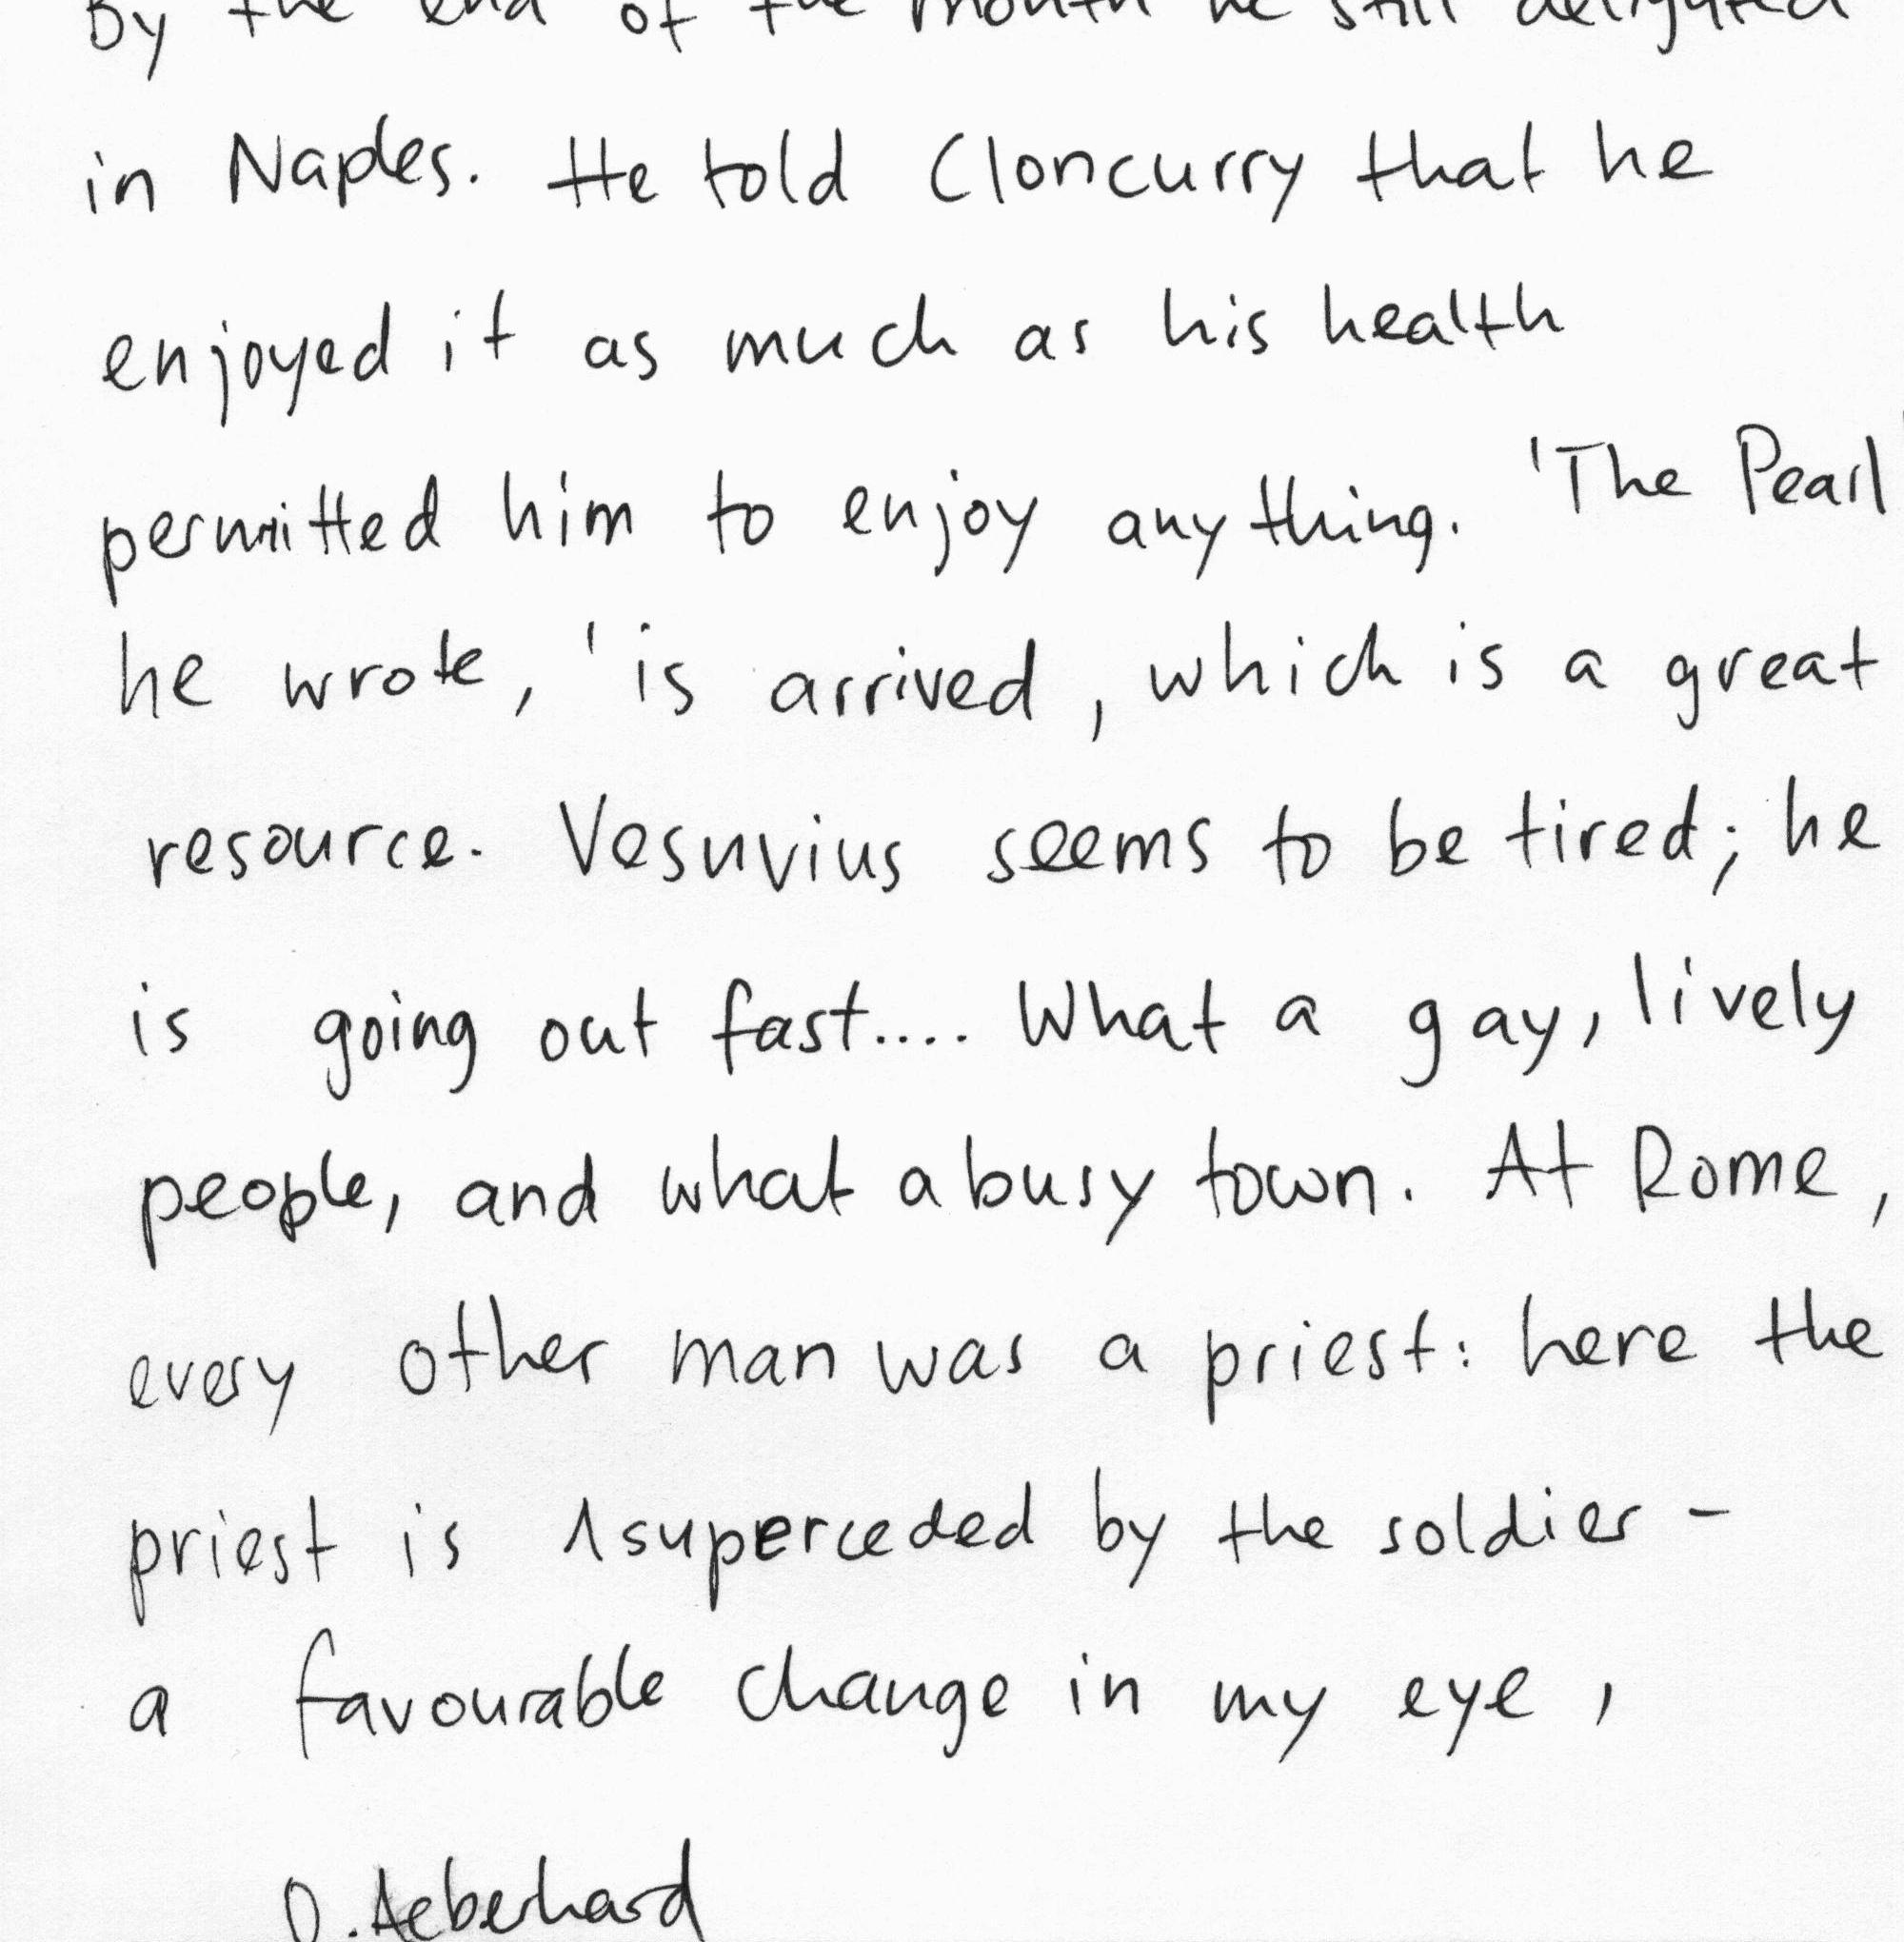 By the end of the month he still delighted
in Naples. He told Cloncurry that he
enjoyed it as much as his health
permitted him to enjoy anything. 'The Pearl'
he wrote, 'is arrived, which is a great
resource. Vesuvius seems to be tired; he
is going out fast.... What a gay, lively
people, and what a busy town. At Rome,
every other man was a priest: here the
priest is superceded by the soldier -
a favourable change in my eye,
D. Aeberhard